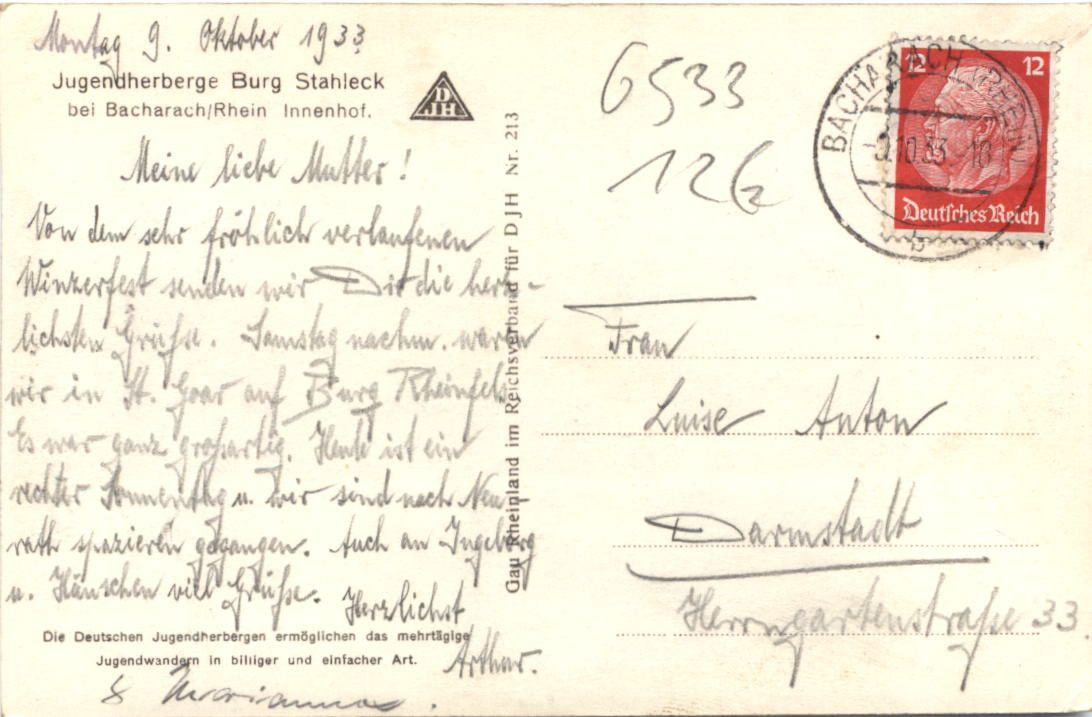 Montag 9. Oktober 1933
Jugendherberge Burg Stahleck
bei Bacharach/Rhein Innenhof.
DJH
Meine liebe Mutter!
Von dem sehr fröhlich verlaufenen
Winzerfest senden wir Dir die herz-
lichsten Grüße. Samstag nachm. waren
wir in St. Goar auf Burg Rheinfels.
Es war ganz großartig. Heute ist ein
rechter Sonnentag u. wir sind nach Neu
rath spazieren gegangen. Auch an Ingeborg
u. Hänschen viel Grüße. Herzlichst
Arthur.
Die Deutschen Jugendherbergen ermöglichen das mehrtägige
Jugendwandern in billiger und einfacher Art.
& Marianne.
Gau Rheinland im Reichsverband für DJH Nr. 213
6533
126
BACHARACH (RHEIN)
9.10.33. 18
b
12 12
Deutsches Reich
Frau
Luise Anton
Darmstadt
Herrngartenstraße 33.